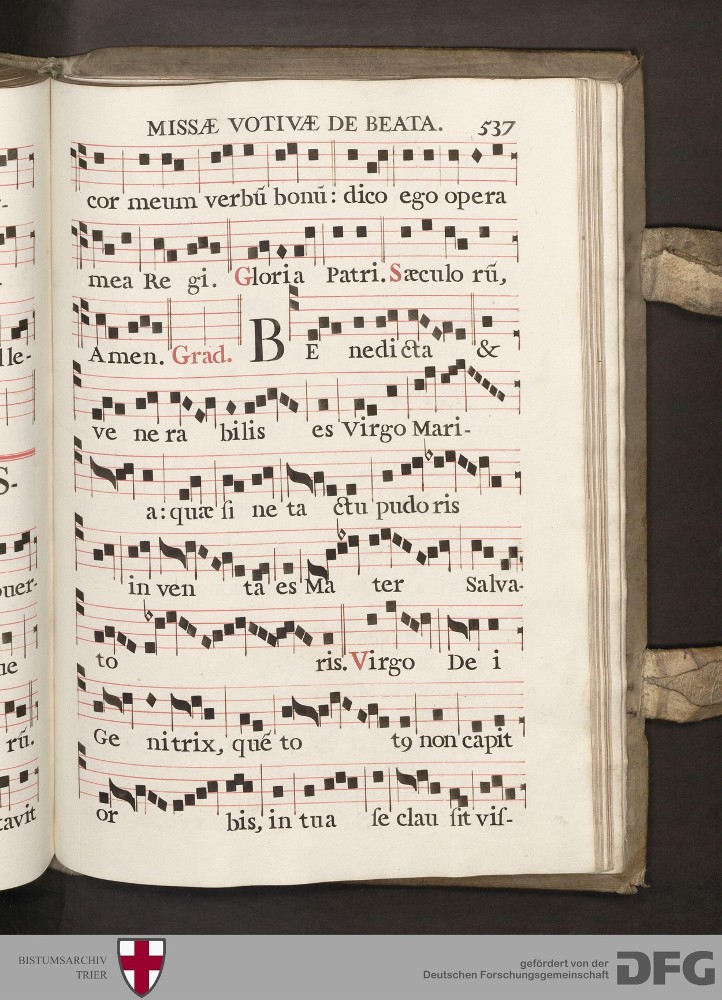 MISSÆ VOTIVÆ DE BEATA. 537
cor meum verbũ bonũ: dico ego opera
mea Re gi. Gloria Patri. Sæculo rũ,
Amen. Grad. BE nedicta &
ve ne ra bilis es Virgo Mari-
a: quæ ſi ne ta ctu pudo ris
in ven ta es Ma ter Salva-
to ris. Virgo De i
Ge nitrix, qué to t9 non capit
or bis, in tua ſe clau ſit viſ-
lle-
S-
puer-
ne
rũ.
tavit
BISTUMSARCHIV
TRIER
gefördert von der
Deutschen Forschungsgemeinschaft
DFG